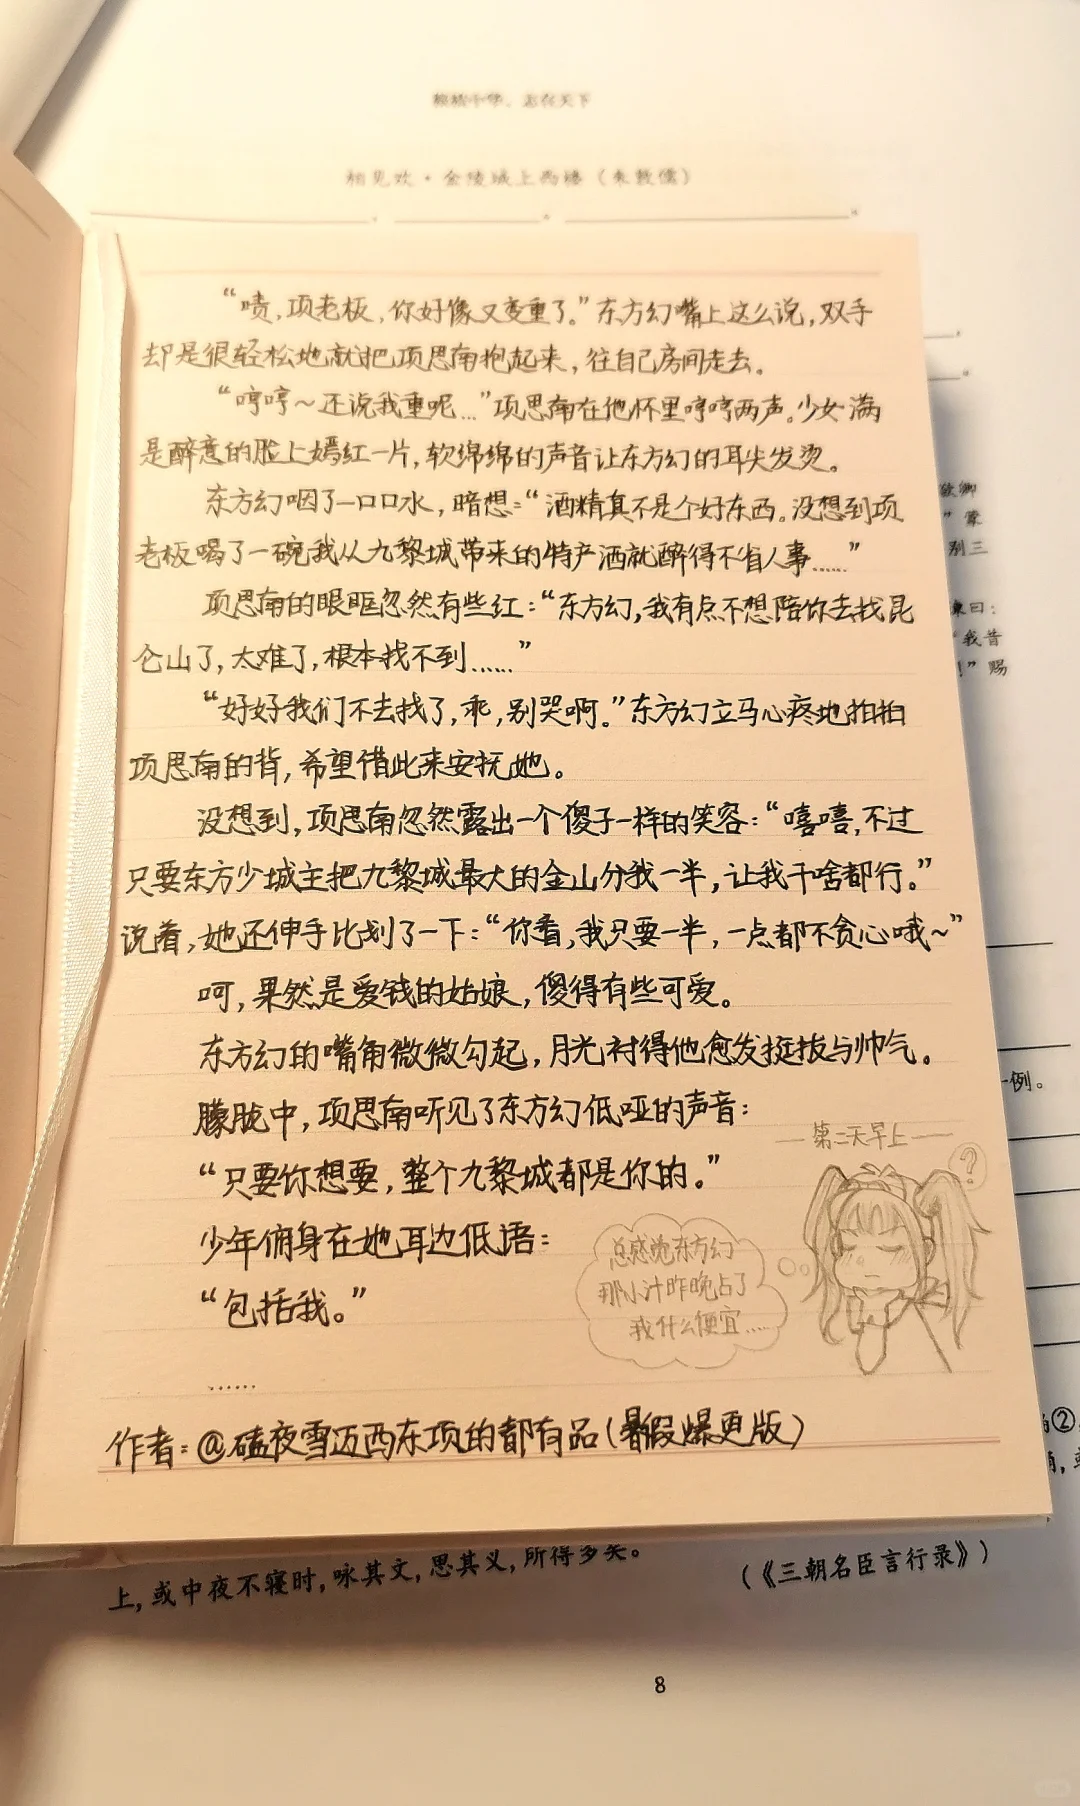 相见欢·金陵城上西楼（朱敦儒）
“啧，项老板，你好像又变重了。”东方幻嘴上这么说，双手
却是很轻松地就把项思南抱起来，往自己房间走去。
“哼哼～还说我重呢…”项思南在他怀里哼哼两声。少女满
是醉意的脸上嫣红一片，软绵绵的声音让东方幻的耳尖发烫。
东方幻咽了一口口水，暗想：“酒精真不是个好东西。没想到项
老板喝了一碗我从九黎城带来的特产酒就醉得不省人事……”
项思南的眼眶忽然有些红：“东方幻，我有点不想陪你去找昆
仑山了，太难了，根本找不到……”
“好好我们不去找了，乖，别哭啊。”东方幻立马心疼地拍拍
项思南的背，希望借此来安抚她。
没想到，项思南忽然露出一个傻子一样的笑容：“嘻嘻，不过
只要东方少城主把九黎城最大的金山分我一半，让我干啥都行。”
说着，她还伸手比划了一下：“你看，我只要一半，一点都不贪心哦～”
呵，果然是爱钱的姑娘，傻得有些可爱。
东方幻的嘴角微微勾起，月光衬得他愈发挺拔与帅气。
朦胧中，项思南听见了东方幻低哑的声音：
“只要你想要，整个九黎城都是你的。”
少年俯身在她耳边低语：
“包括我。”
……
—第二天早上—
？
总感觉东方幻
那小汁昨晚占了
我什么便宜……
作者：@磕夜雪迈西东项的都有品（暑假爆更版）
”蒙
别三
“我昔
！”赐
一例。
②
上，或中夜不寝时，咏其文，思其义，所得多矣。
（《三朝名臣言行录》）
8